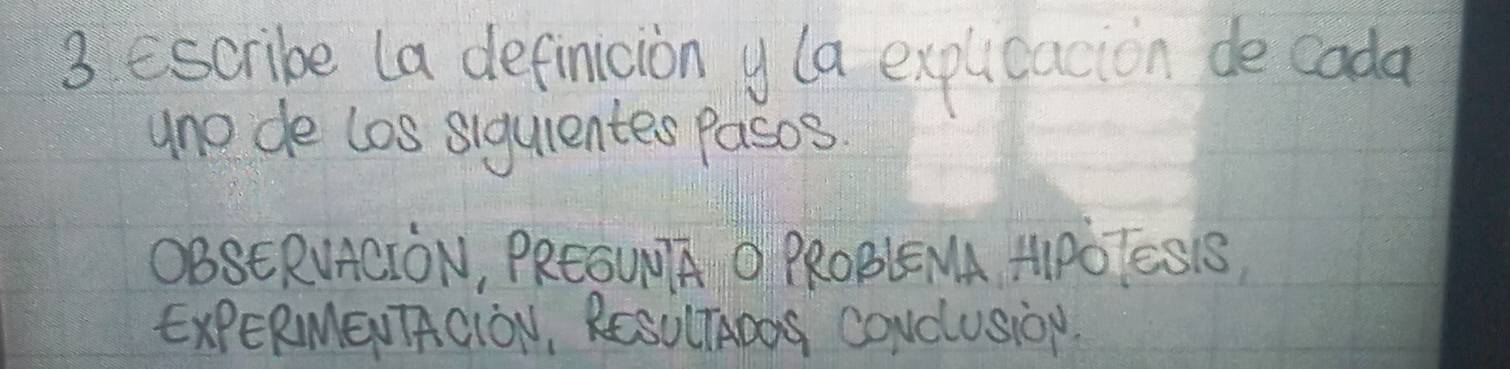 3 Escribe la definición y la explicación de cada
uno de los siguientes pasos.
OBSERVACIÓN, PREGUNTA O PROBLEMA, HIPÓTESIS,
EXPERIMENTACIÓN, RESULTADOS CONCLUSIÓN.